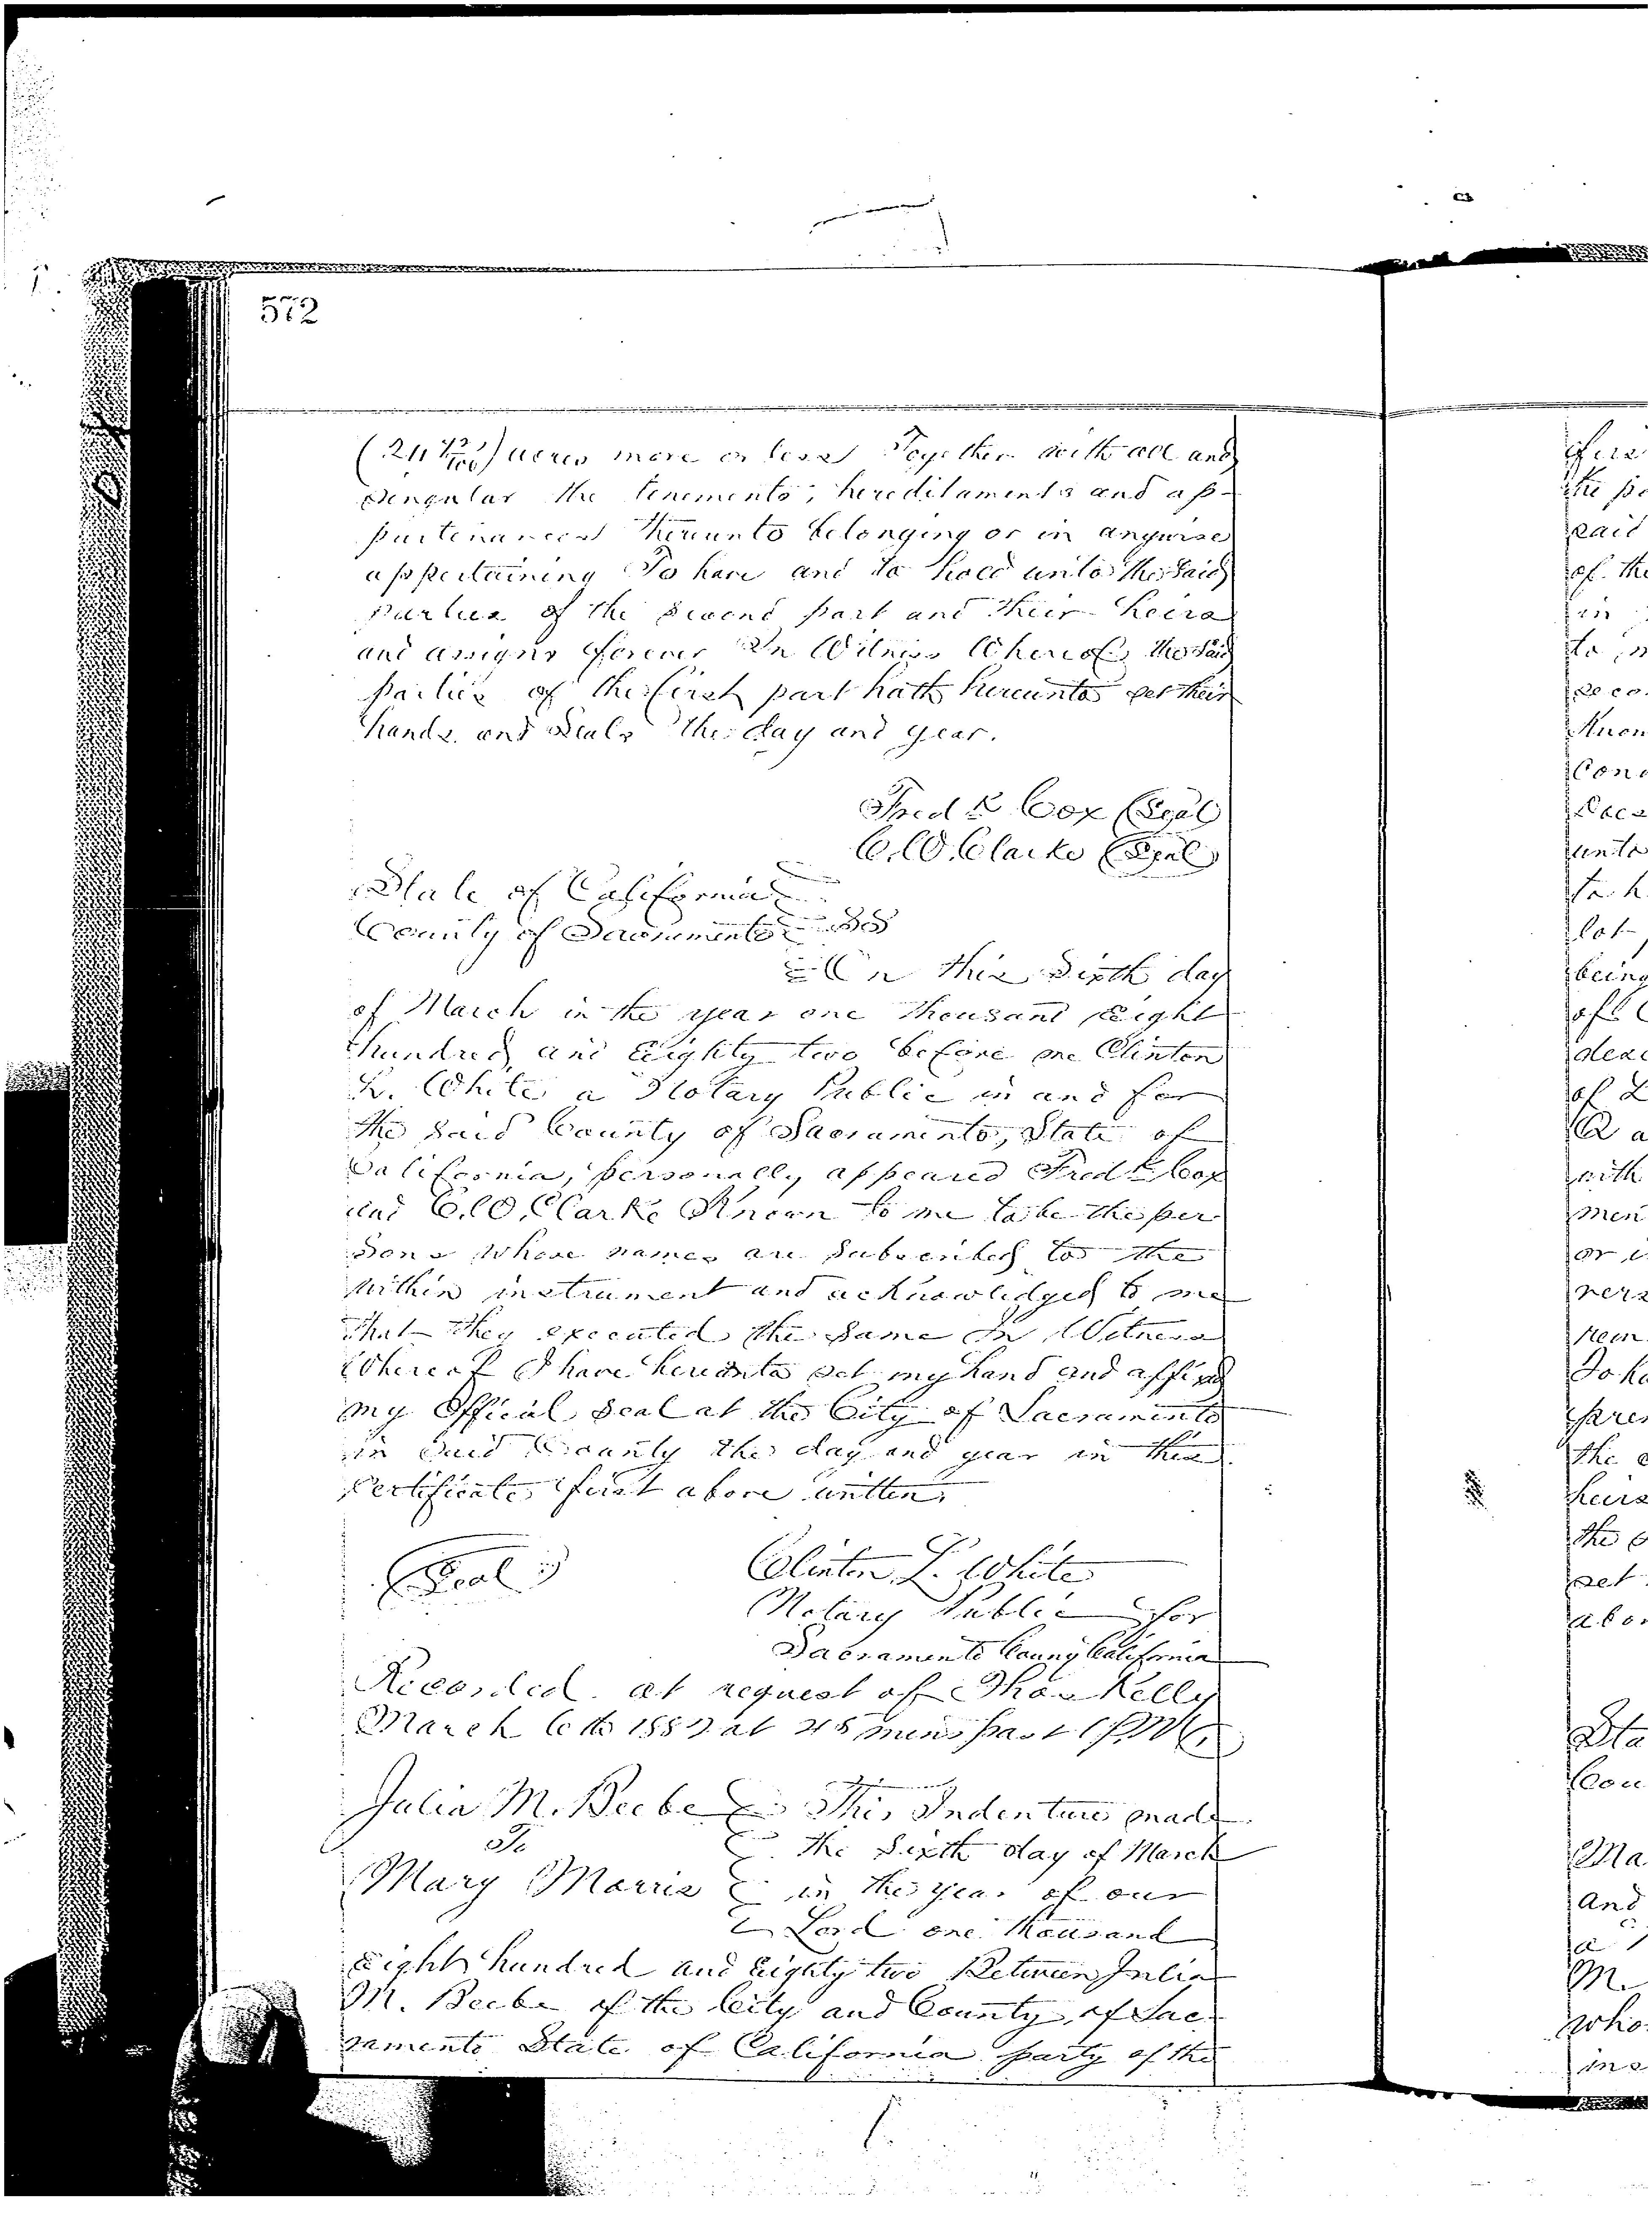 572
acres more or less Together with all and
singular the tenements, hereditaments and ap-
purtenances thereunto belonging or in anywise
appertaining To have and to hold unto the said
parties of the second part and their heirs
and assigns forever In Witness Whereof the said
parties of the first part hath hereunto set their
hands and Seals the day and year.
Fred K Cox (Seal)
C. W. Clarke (Seal)
State of California
County of Sacramento SS
On this Sixth day
of March in the year one thousand Eight
hundred and Eighty two before me Clinton
L. White a Notary Public in and for
the said County of Sacramento, State of
California, personally appeared Fred K Cox
and C. W. Clarke Known to me to be the per
sons whose names are subscribed to the
within instrument and acknowledged to me
that they executed the same In Witness
Whereof I have hereunto set my hand and affixed
my Offical Seal at the City of Sacramento
in said County the day and year in this
Certificate first above written.
(Seal) Clinton L. White
Notary Public for
Sacramento Couny California
Recorded at request of Thos Kelly
March 6th 1882 at 45 mins past 1 P.M.
Julia M. Beebe This Indenture made
To the Sixth day of March
Mary Morris in the year of our
Lord one thousand
Eight hundred and Eighty two Between Julia
M. Beebe of the City and County of Sac
ramento State of California party of the